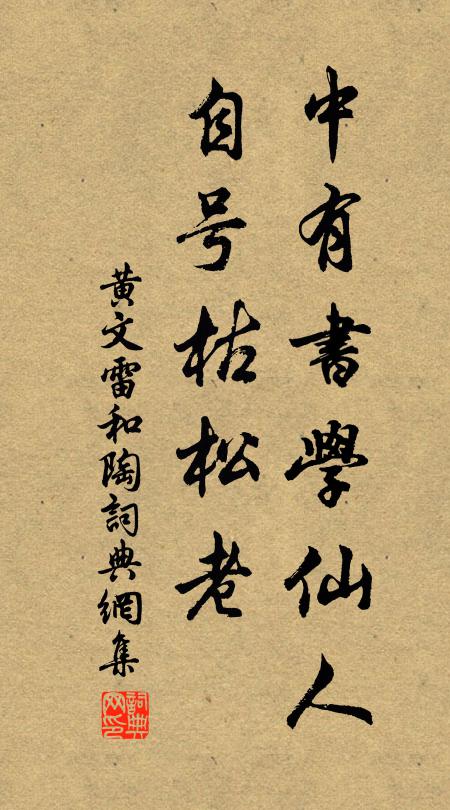 中有書學仙人
自号枯松老
黃文雷和陶詞典網集
詞典網印